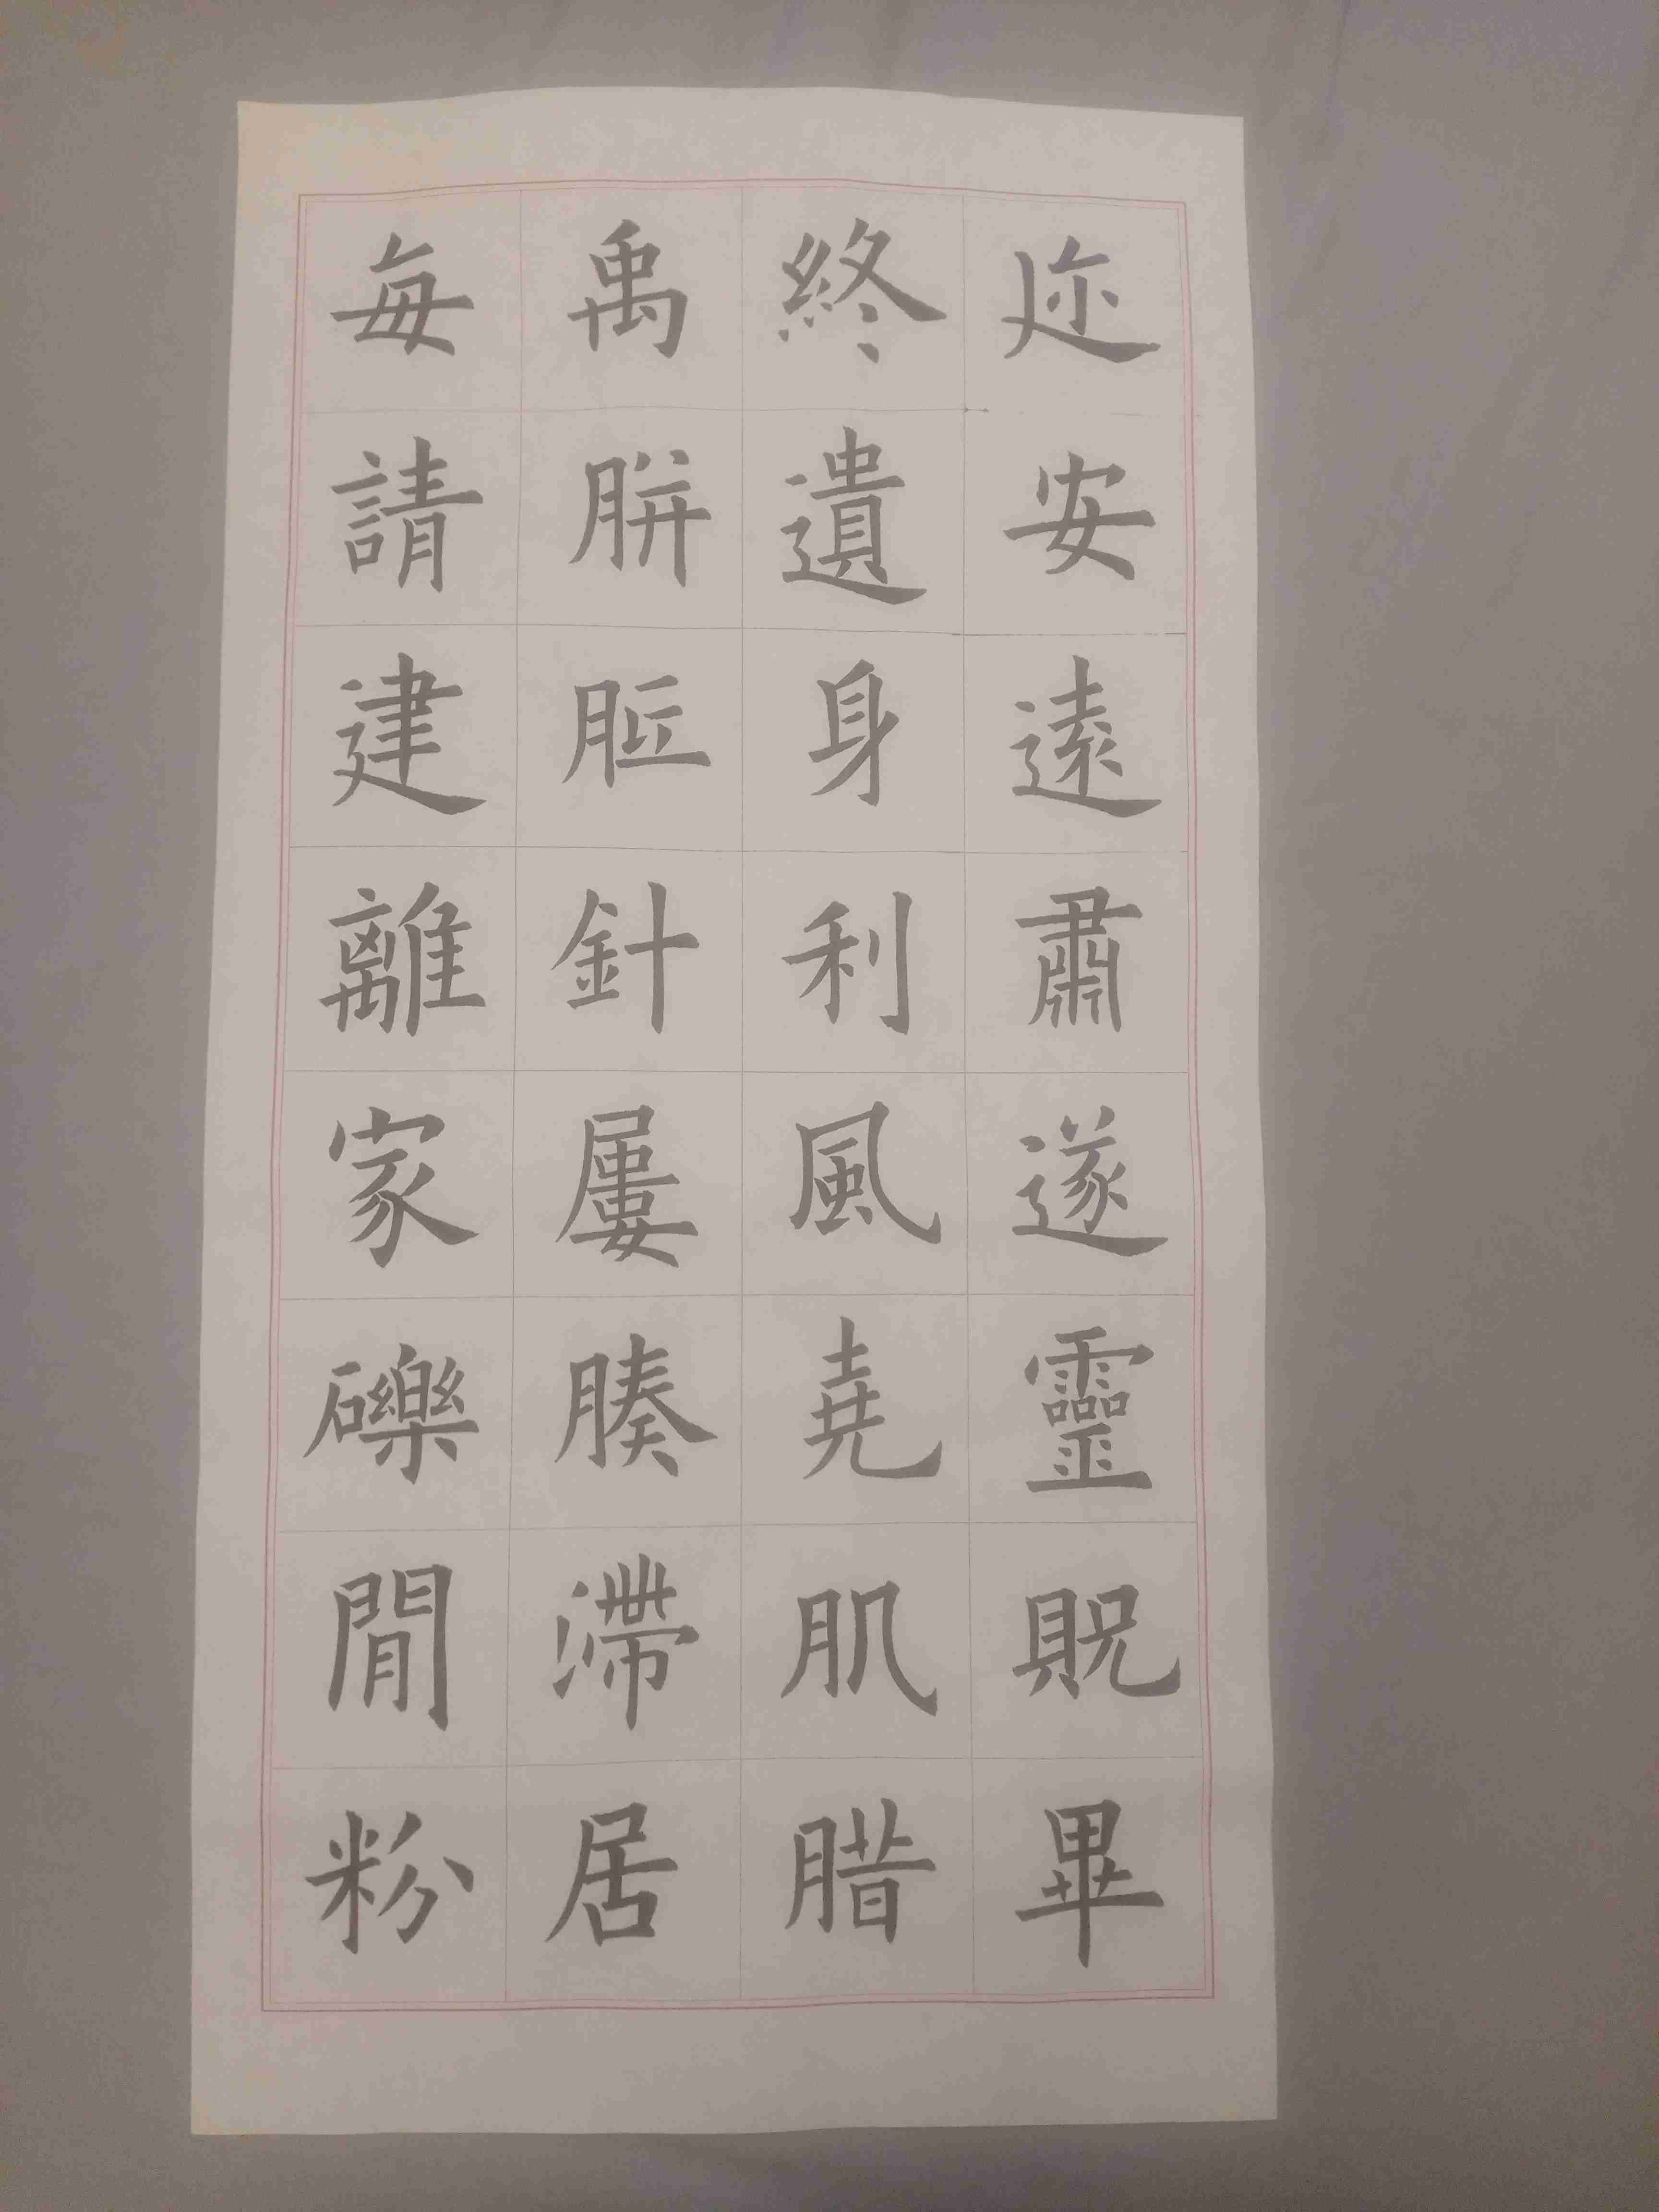 迩安遠肅遂靈貺畢
終遺身利風堯肌腊
禹胼胝針屢腠滯居
每請建離家礫閒粉